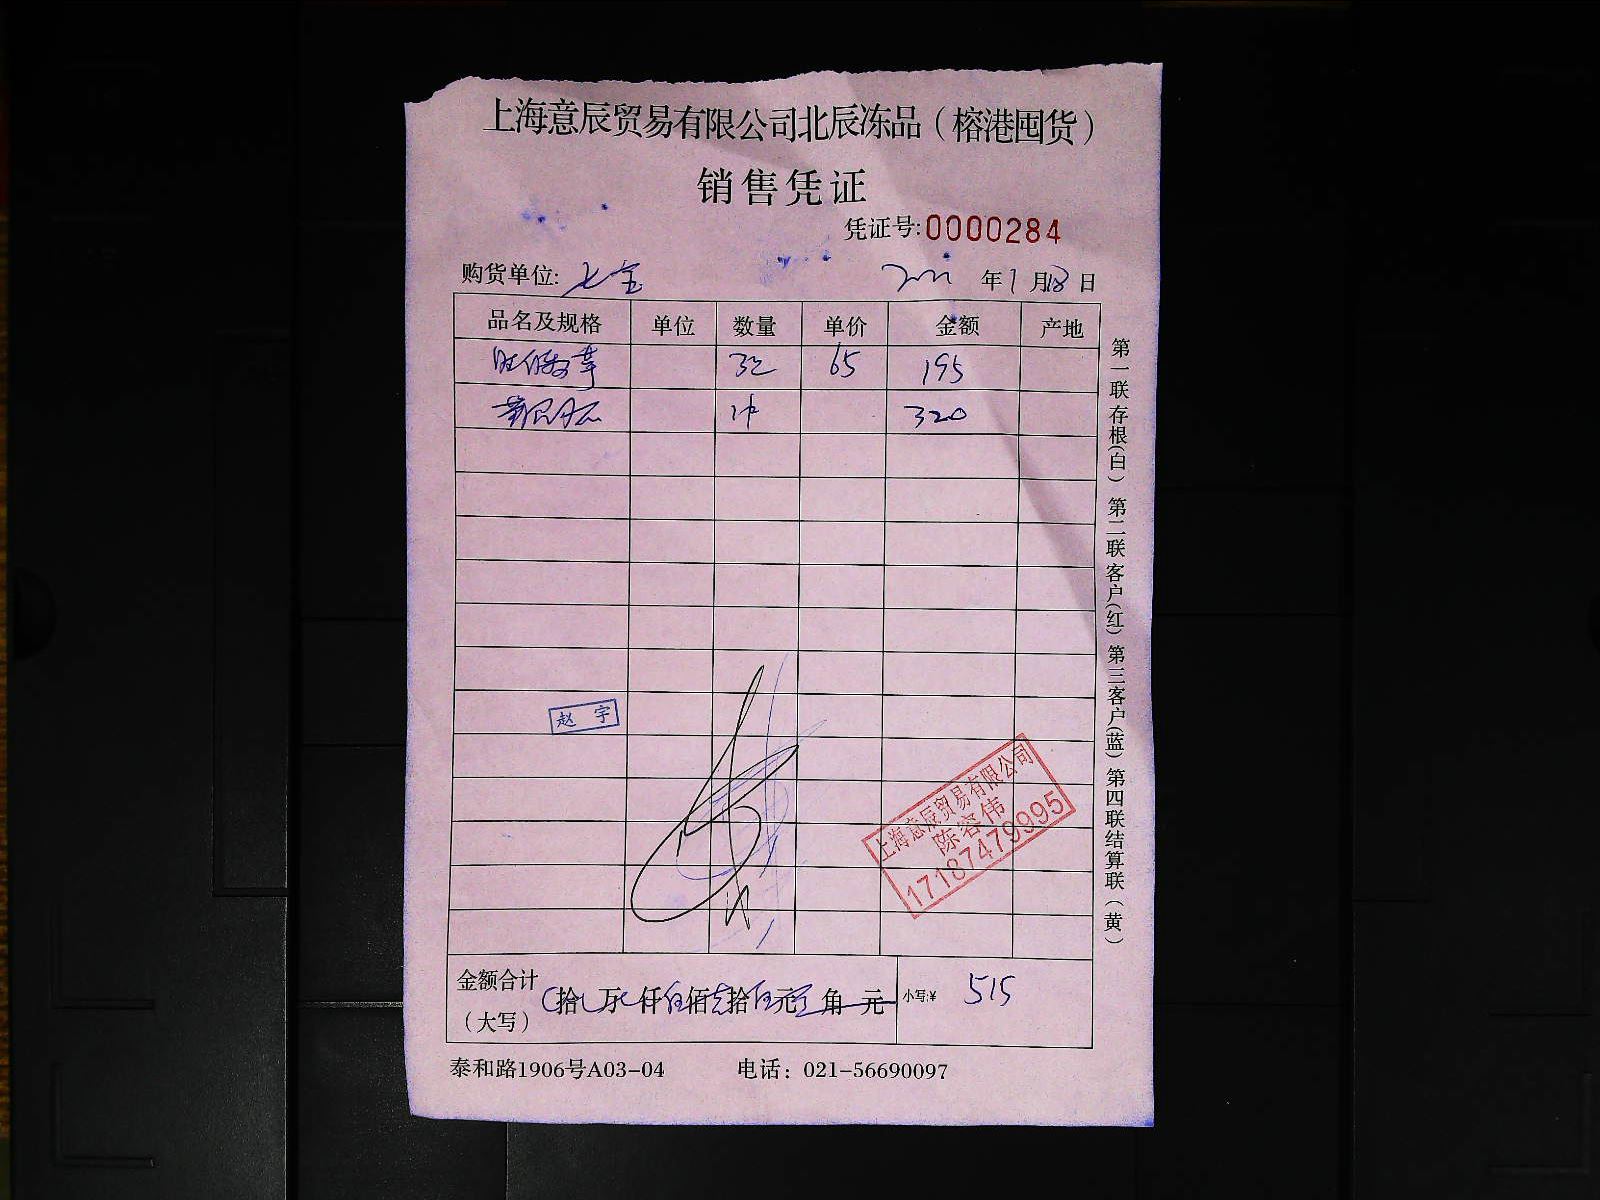 上海意辰贸易有限公司北辰冻品（榕港囤货）
销售凭证
凭证号:0000284
购货单位: 七宝 年1月18日
品名及规格 单位 数量 单价 金额 产地
65 195
1件 320
赵宇
上海意辰贸易有限公司
陈容伟
17187479995
金额合计（大写） 拾 万 仟伍佰壹拾伍元 角 元 小写:¥ 515
泰和路1906号A03-04 电话：021-56690097
第一联存根(白) 第二联客户(红) 第三客户(蓝) 第四联结算联（黄）